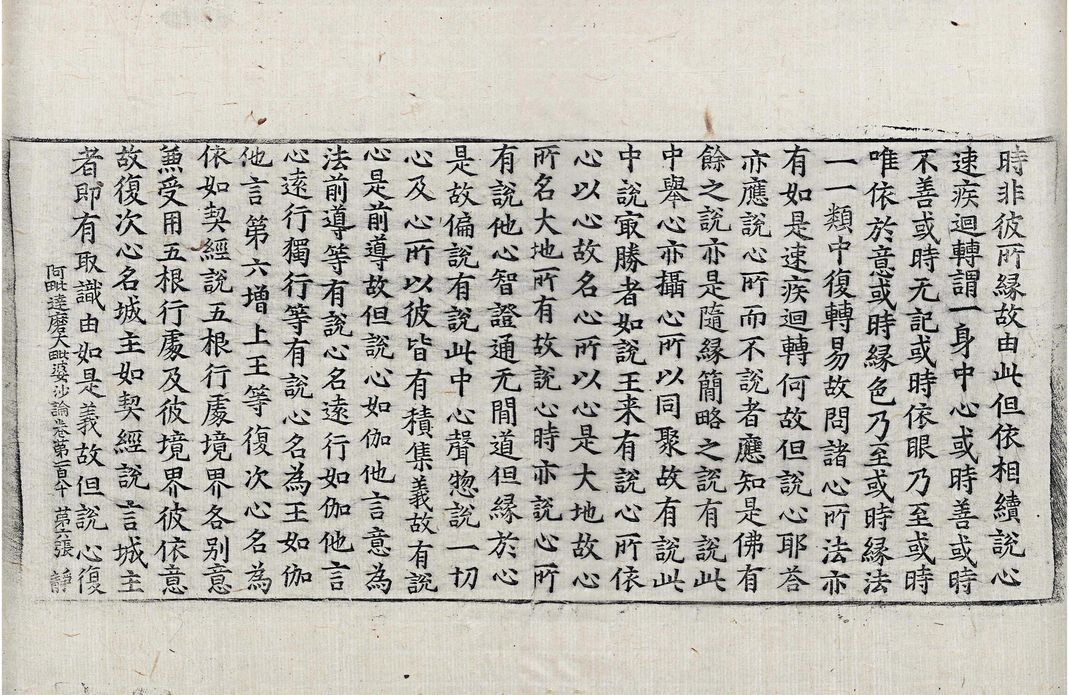 時非彼所緣故由此但依相續說心
速疾迴轉謂一身中心或時善或時
不善或時无記或時依眼乃至或時
唯依於意或時緣色乃至或時緣法
一一類中復轉易故問諸心所法亦
有如是速疾迴轉何故但說心耶荅
亦應說心所而不說者應知是佛有
餘之說亦是隨緣簡略之說有說此
中舉心亦攝心所以同聚故有說此
中說㝡勝者如說王来有說心所依
心以心故名心所以心是大地故心
所名大地所有故說心時亦說心所
有說他心智證通无閒道但緣於心
是故偏說有說此中心聲惣說一切
心及心所以彼皆有積集義故有說
心是前導故但說心如伽他言意為
法前導等有說心名遠行如伽他言
心遠行獨行等有說心名為王如伽
他言第六增上王等復次心名為
依如契經說五根行處境界各別意
兼受用五根行處及彼境界彼依意
故復次心名城主如契經說言城主
者即有取識由如是義故但說心復
阿毗達磨大毗婆沙論卷第一百八十 第六張 靜